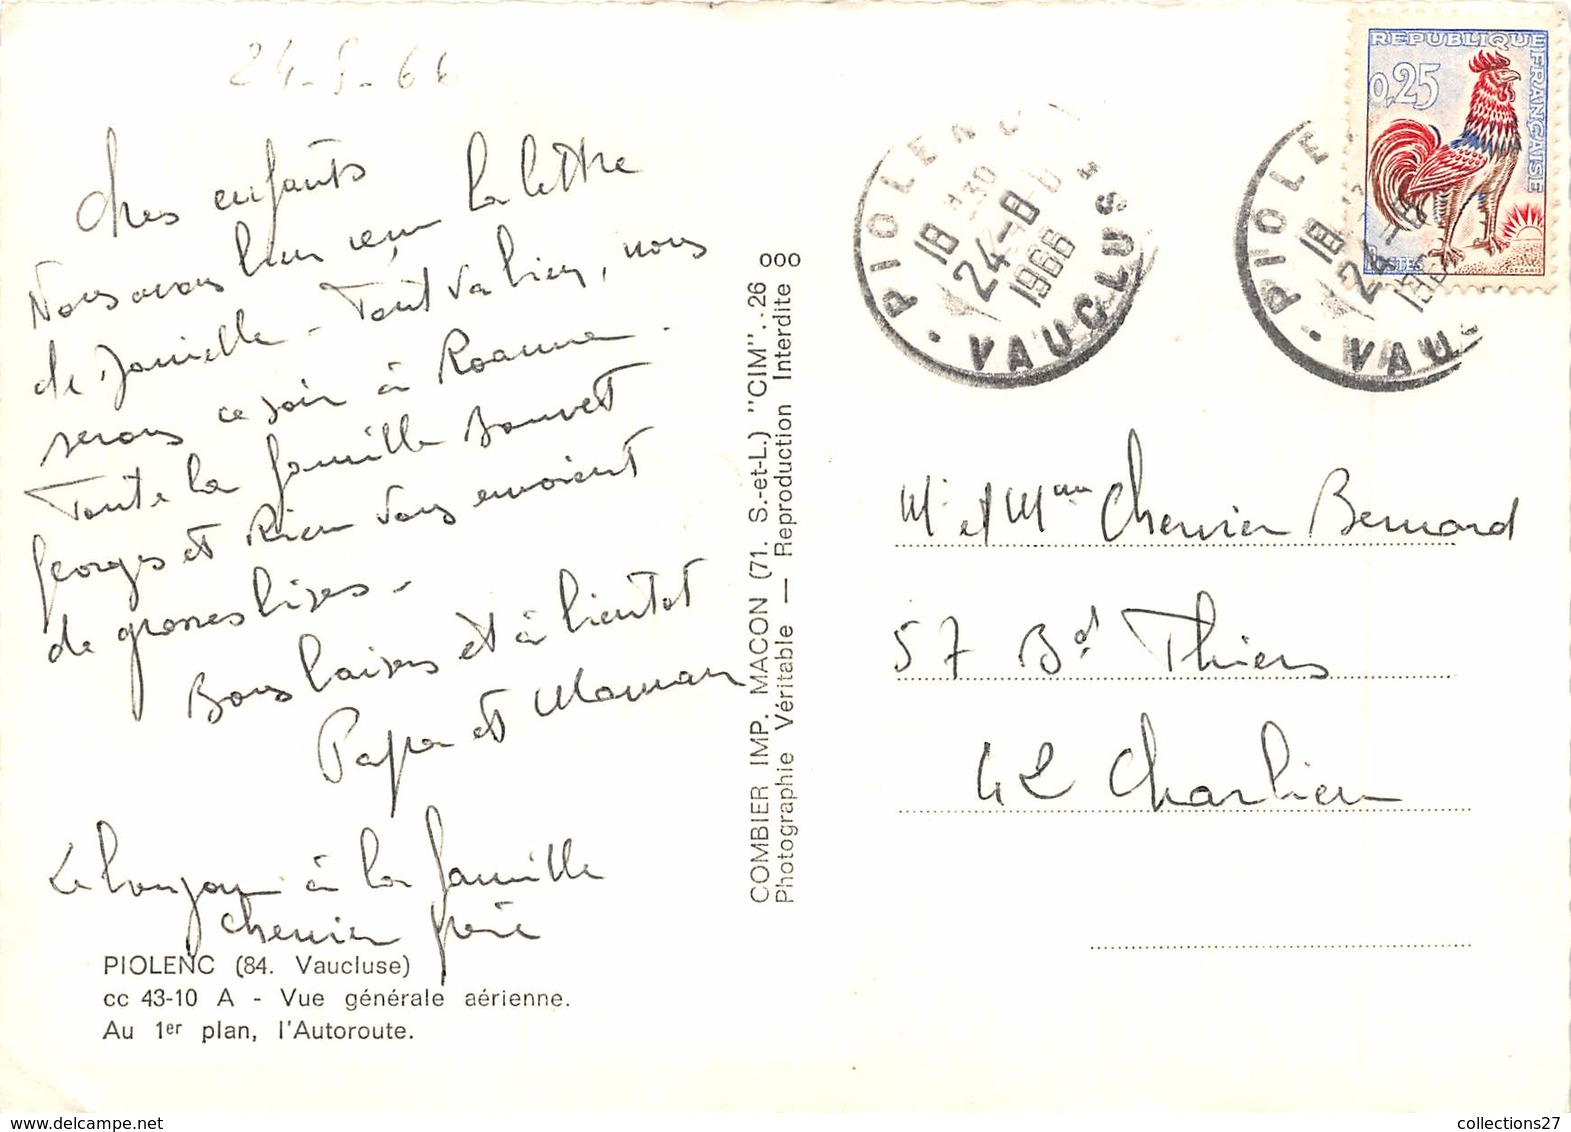 24-8-66
Chers enfants
Nous avons bien reçu la lettre
de Danielle - Tout va bien, nous
serons ce soir à Roanne.
Toute la famille Bouvet
Georges et vous envoient
de grosses bises.
Bons baisers et à bientôt
Papa et Maman
Le bonjour à la famille
Chenier père
PIOLENC (84. Vaucluse)
cc 43-10 A - Vue générale aérienne.
Au 1er plan, l'Autoroute.
COMBIER IMP. MACON (71. S.-et-L.) "CIM".-26 000
Photographie Véritable — Reproduction Interdite
REPUBLIQUE FRANÇAISE
0,25
POSTES
DECARIS
PIOLENC
18H30
24-8
1966
VAUCLUSE
PIOLE
18
24-8
196
VAU
Mr et Mme Chenier Bernard
57 Bd Thiers
42 Charlieu
collections27